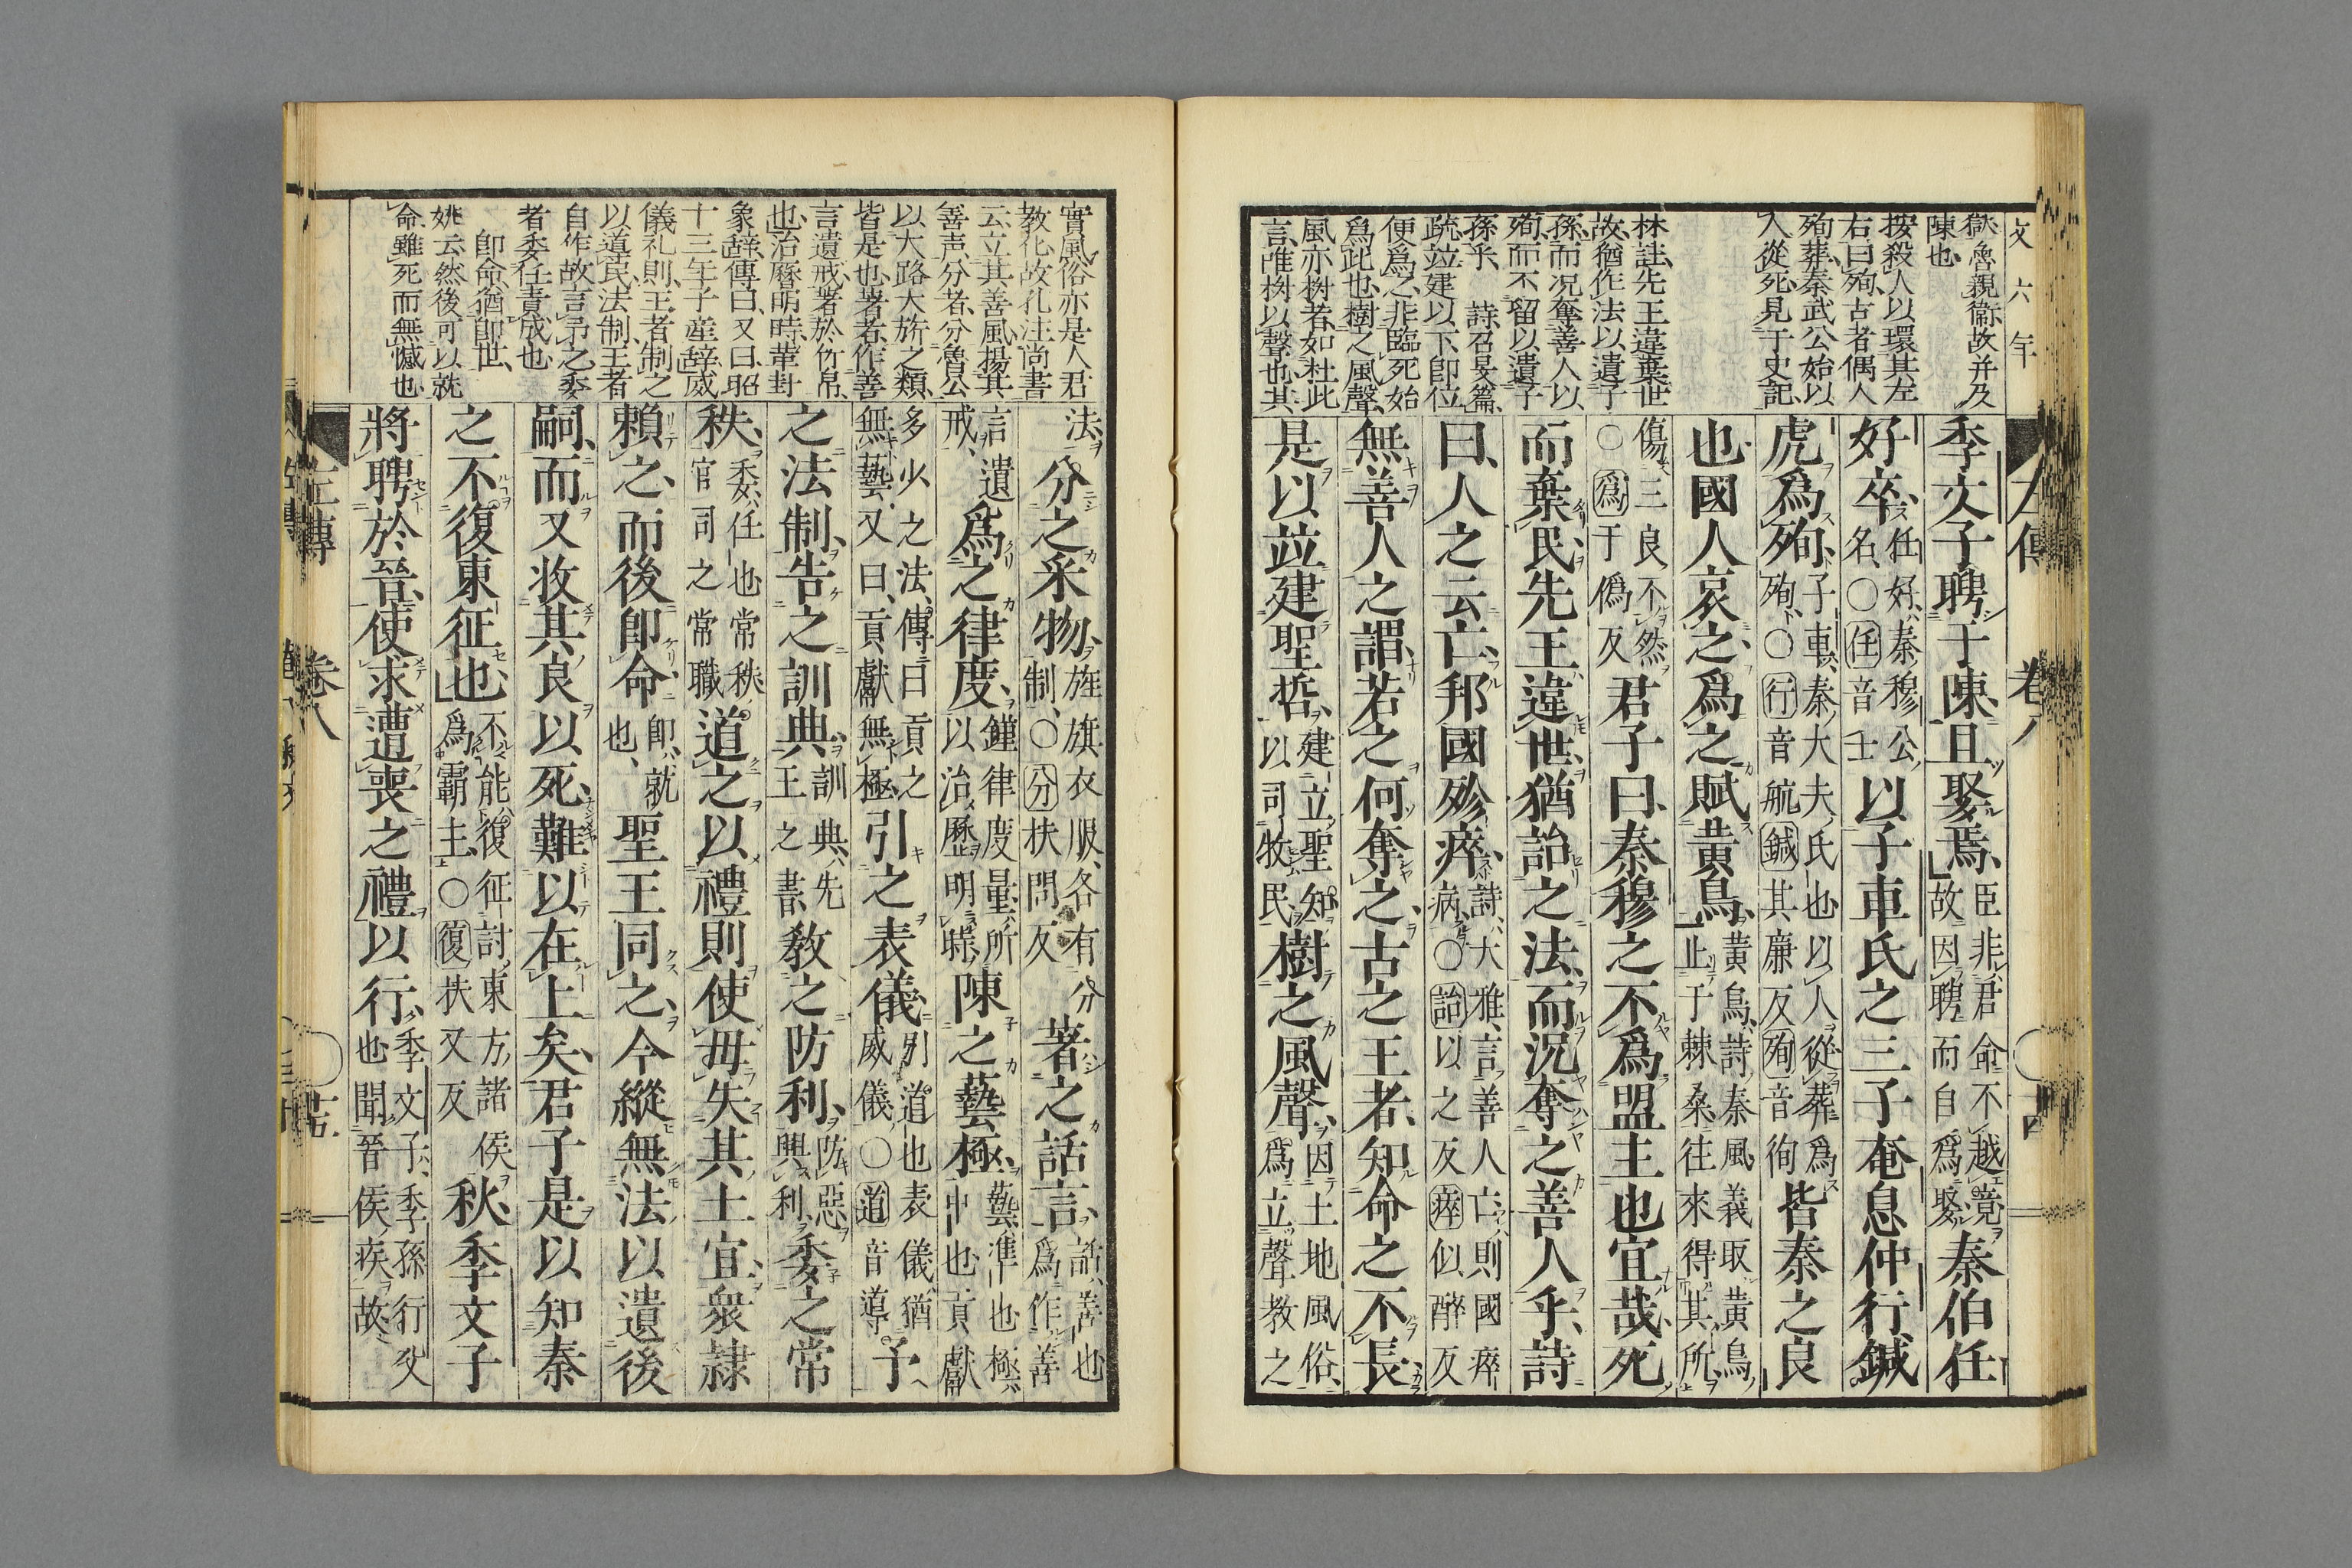 文六年
獄魯親衞故并及
陳也
按殺人以環其左
右曰殉古者偶人
殉葬秦武公始以
人從死見于史記
林註先王違棄世
故猶作法以遺子
孫而况奪善人以
殉而不留以遺子
孫乎 詩召旻篇
疏竝建以下即位
便爲之非臨死始
爲此也樹之風聲
風亦樹者如杜此
言唯樹以聲也其
左傳 卷八
季文子聘于陳且娶焉臣非君命不越竟故因聘而自爲娶秦伯任
好卒任好秦穆公名○任音壬以子車氏之三子奄息仲行鍼
虎爲殉子車秦大夫氏也以人從葬爲殉○行音航鍼其廉反殉音徇皆秦之良
也國人哀之爲之賦黃鳥黃鳥詩秦風義取黃鳥止于棘桑往來得其所
傷三良不然○爲于僞反君子曰秦穆之不爲盟主也宜哉死
而棄民先王違世猶詒之法而況奪之善人乎詩
曰人之云亡邦國殄瘁詩大雅言善人亡則國瘁病○詒以之反瘁似醉反
無善人之謂若之何奪之古之王者知命之不長
是以竝建聖哲建立聖知以司牧民樹之風聲因土地風俗爲立聲教之
實風俗亦是人君
教化故孔注尚書
云立其善風揚其
善声分者分魯公
以大路大旂之類
皆是也著者作善
言遺戒著於竹帛
也治曆明時革封
象辭傳曰又曰昭
十三年子産辭威
儀礼則王者制之
以道民法制王者
自作故言予之委
者委任責成也
即命猶即世
姚云然後可以就
命雖死而無憾也
法分之采物旌旗衣服各有分制○分扶問反著之話言話善也爲作善
言遺戒爲之律度鍾律度量所以治歷明時陳之藝極藝準也極中也貢獻
多少之法傳曰貢之無藝又曰貢獻無極引之表儀引道也表儀猶威儀○道音導予
之法制告之訓典訓典先王之書教之防利防惡興利委之常
秩委任也常秩官司之常職道之以禮則使毋失其土宜衆隷
賴之而後即命即就也聖王同之今縱無法以遺後
嗣而又收其良以死難以在上矣君子是以知秦
之不復東征也不能復征討東方諸侯爲霸主○復扶又反秋季文子
將聘於晉使求遭喪之禮以行季文子季孫行父也聞晉侯疾故
左傳 卷八